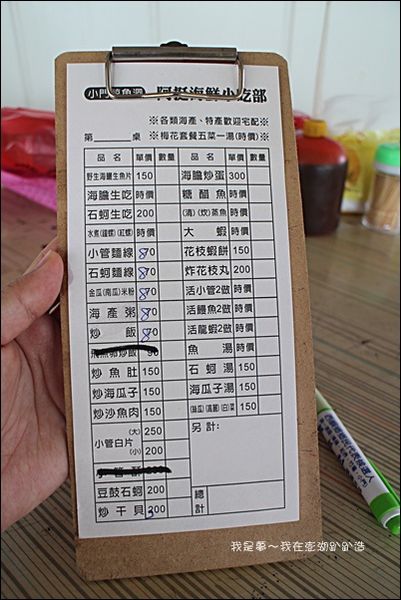 小門鯨魚洞 阿挺海鮮小吃部
※各類海產、特產歡迎宅配※
第 桌 ※梅花套餐五菜一湯(時價)※
品名 單價 數量 品名 單價 數量
野生海鱺生魚片 150 海膽炒蛋 300
海膽生吃 時價 糖醋魚 時價
石蚵生吃 200 (清)(炊)蒸魚 時價
水煮(鐘螺)(紅螺) 時價 大蝦 時價
小管麵線 870 花枝蝦餅 150
石蚵麵線 870 炸花枝丸 200
金瓜(南瓜)米粉 870 活小管2做 時價
海產粥 870 活鰻魚2做 時價
炒飯 870 活龍蝦2做 時價
飛魚卵炒飯 90 魚湯 時價
炒魚肚 150 石蚵湯 150
炒海瓜子 150 海瓜子湯 150
炒沙魚肉 150 (高麗)(白)菜 150
小管白片 (大) 250 另計:
(小) 200
豆鼓石蚵 200 總計
炒干貝 300
我是夢～我在澎湖趴趴造